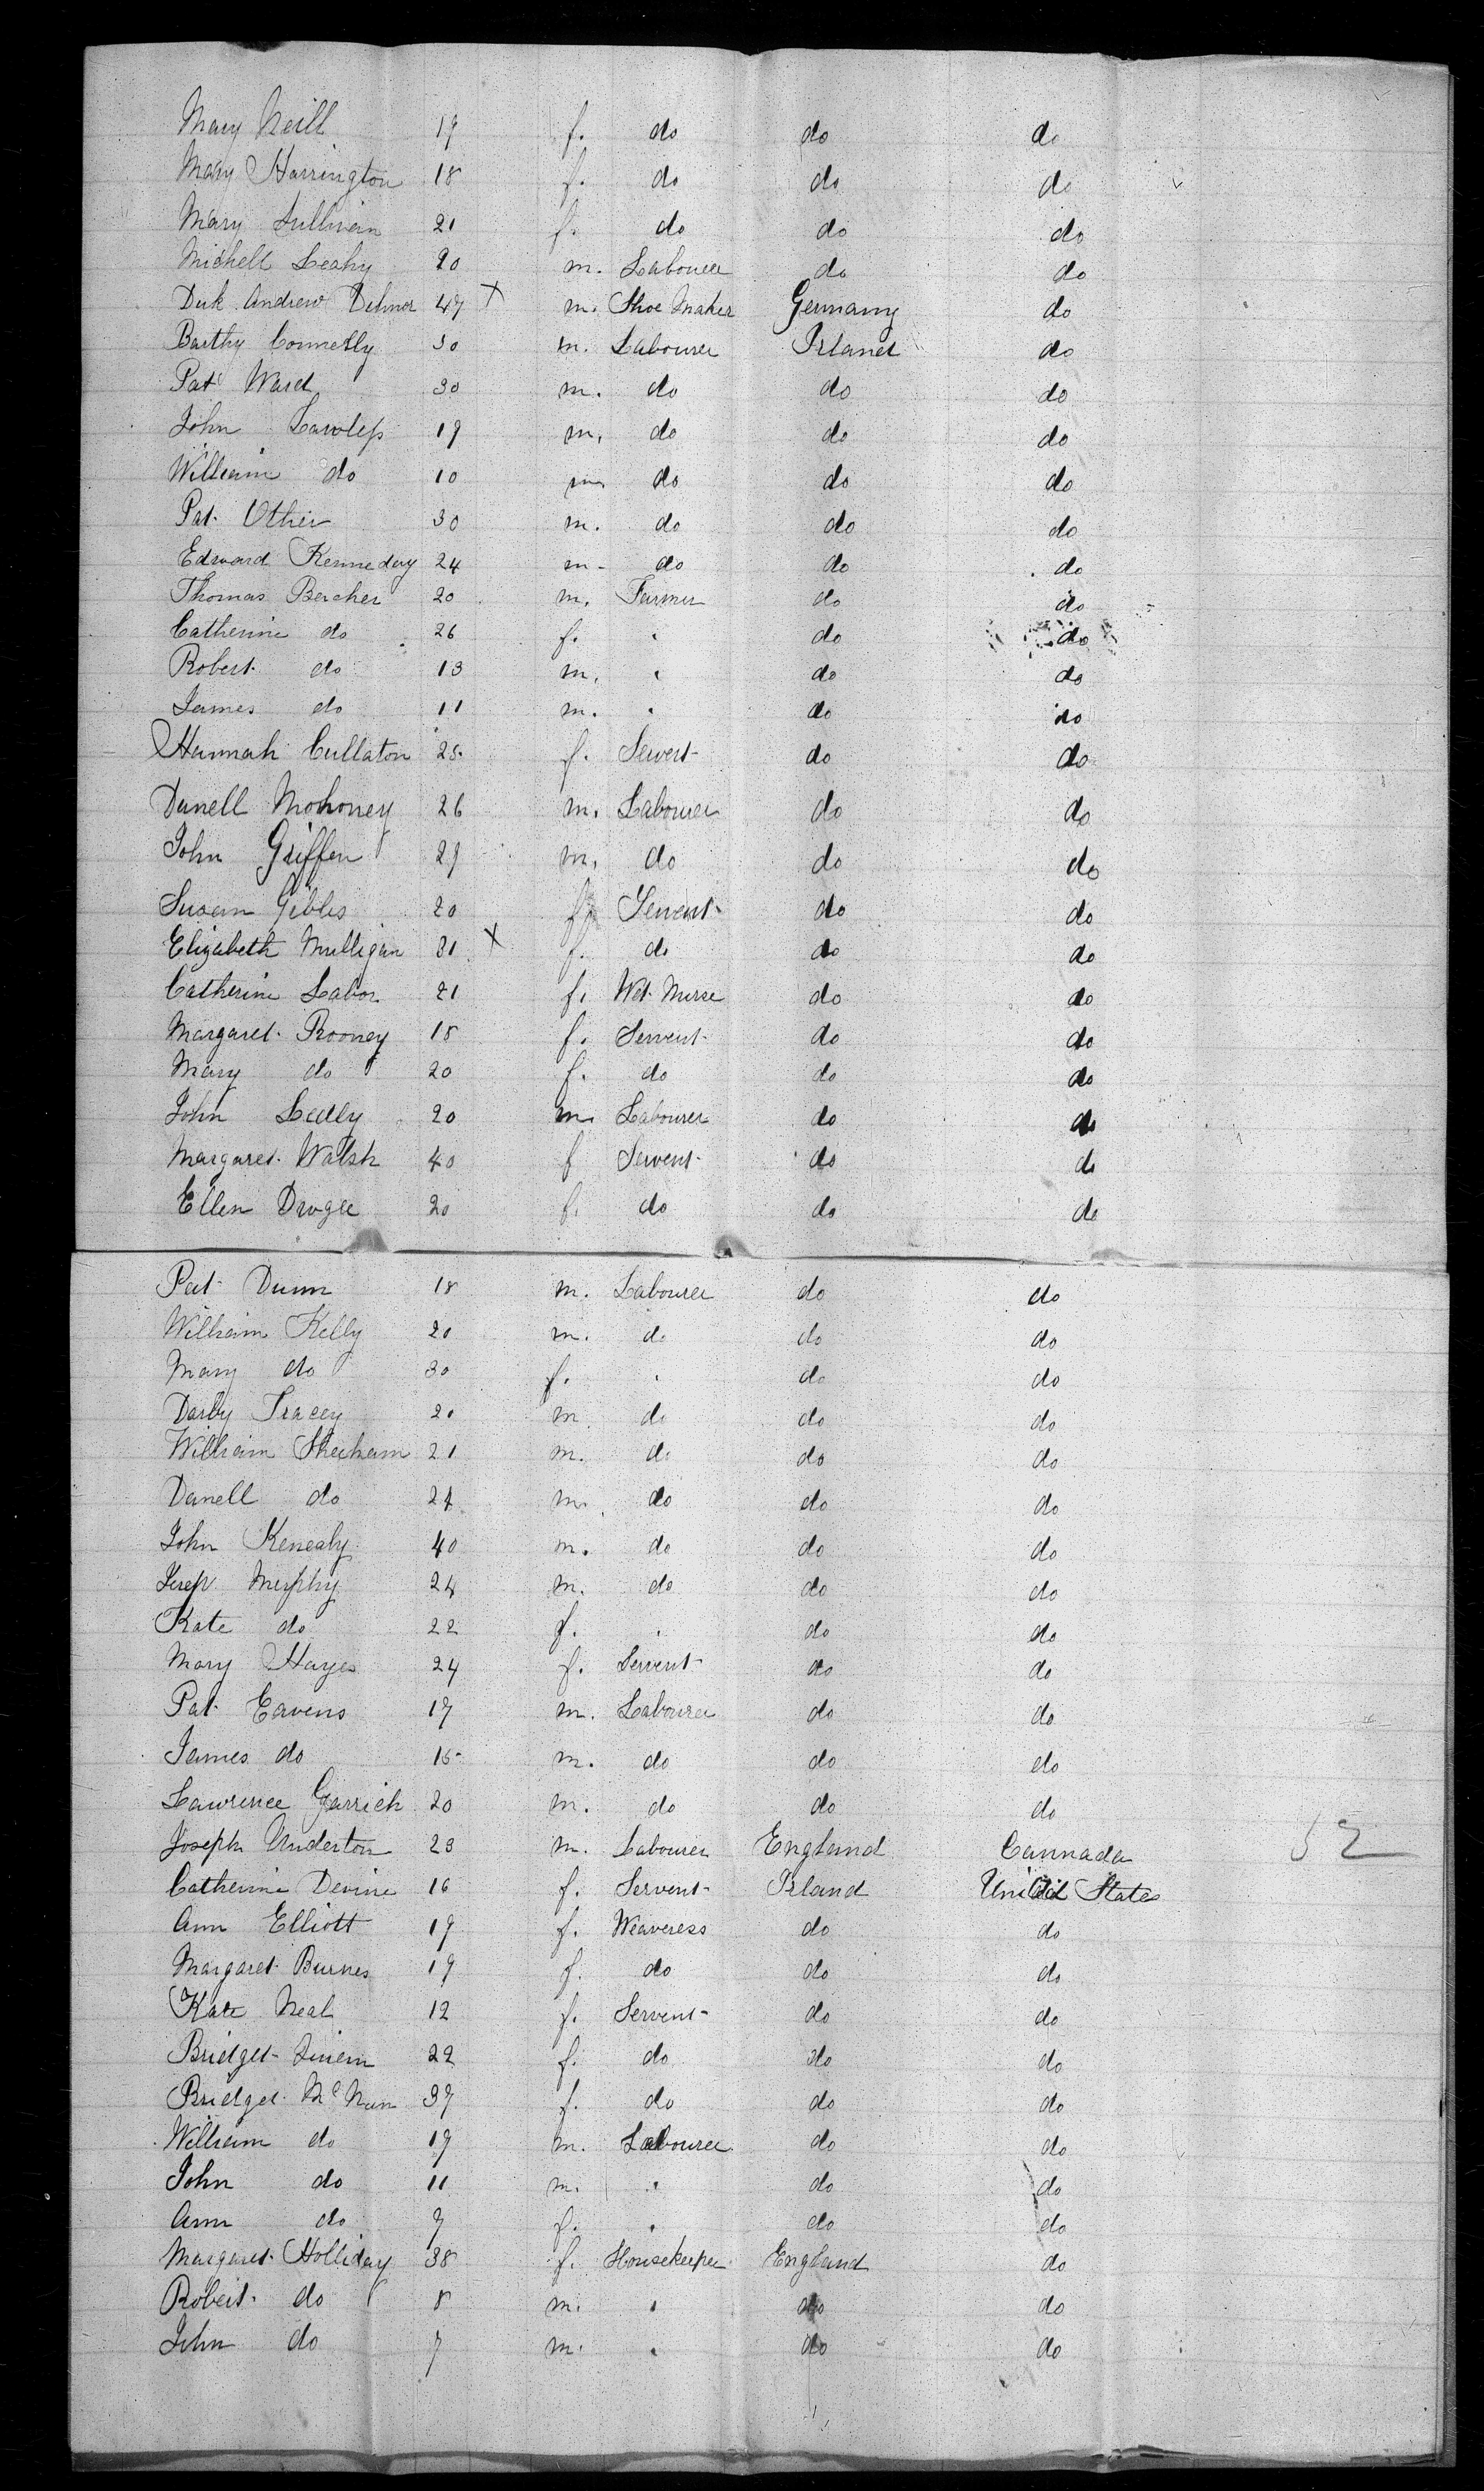 Mary Neill 19 f. do do do
Mary Harrington 18 f. do do do
Mary Sullivan 21 f. do do do
Michell Leahy 20 m. Labourer do do
Andrew 47 X m. Shoe Maker Germany do
Barthy Connelly 30 m. Labourer Irland do
Pat Ward 30 m. do do do
John Lawless 19 m. do do do
William do 10 m. do do do
Pat. 30 m. do do do
Edward Kenneday 24 m- do do do
Thomas Bercher 20 m. Farmer do do
Catherine do 26 f. " do do
Robert do 13 m. " do do
James do 11 m. " do do
Hannah Cullaton 25 f. Servert do do
Danell Mohoney 26 m. Labourer do do
John Griffen 29 m. do do do
Susan Gibbs 20 f. Servent do do
Elizabeth Mulligan 31 X f. do do do
Catherine Labor 21 f. Wet Nurse do do
Margaret Rooney 18 f. Servent do do
Mary do 20 f. do do do
John 20 m. Labourer do do
Margaret Walsh 40 f Servent do do
Ellen 20 f. do do do
Pat Dunn 18 m. Labourer do do
William Kelly 20 m. do do do
Mary do 30 f. " do do
Darby Tracey 20 m. do do do
William Sheeham 21 m. do do do
Danell do 24 m. do do do
John Kenealy 40 m. do do do
Murphy 24 m. do do do
Kate do 22 f. " do do
Mary Hayes 24 f. Servent do do
Pat Eavens 17 m. Labourer do do
James do 15 m. do do do
Lawrence Garrich 20 m. do do do
Joseph Underton 23 m. Labourer England Cannada 52
Catherine Devine 16 f. Servent Irland United States
Ann Elliott 19 f. Weaveress do do
Margaret Burnes 19 f. do do do
Kate Neal 12 f. Servent do do
Bridget 22 f. do do do
Bridget 37 f. do do do
William do 19 m. Labourer do do
John do 11 m. " do do
Ann do 9 f. " do do
Margaret Holliday 38 f. Housekeeper England do
Robert do 8 m. " do do
John do 7 m. " do do